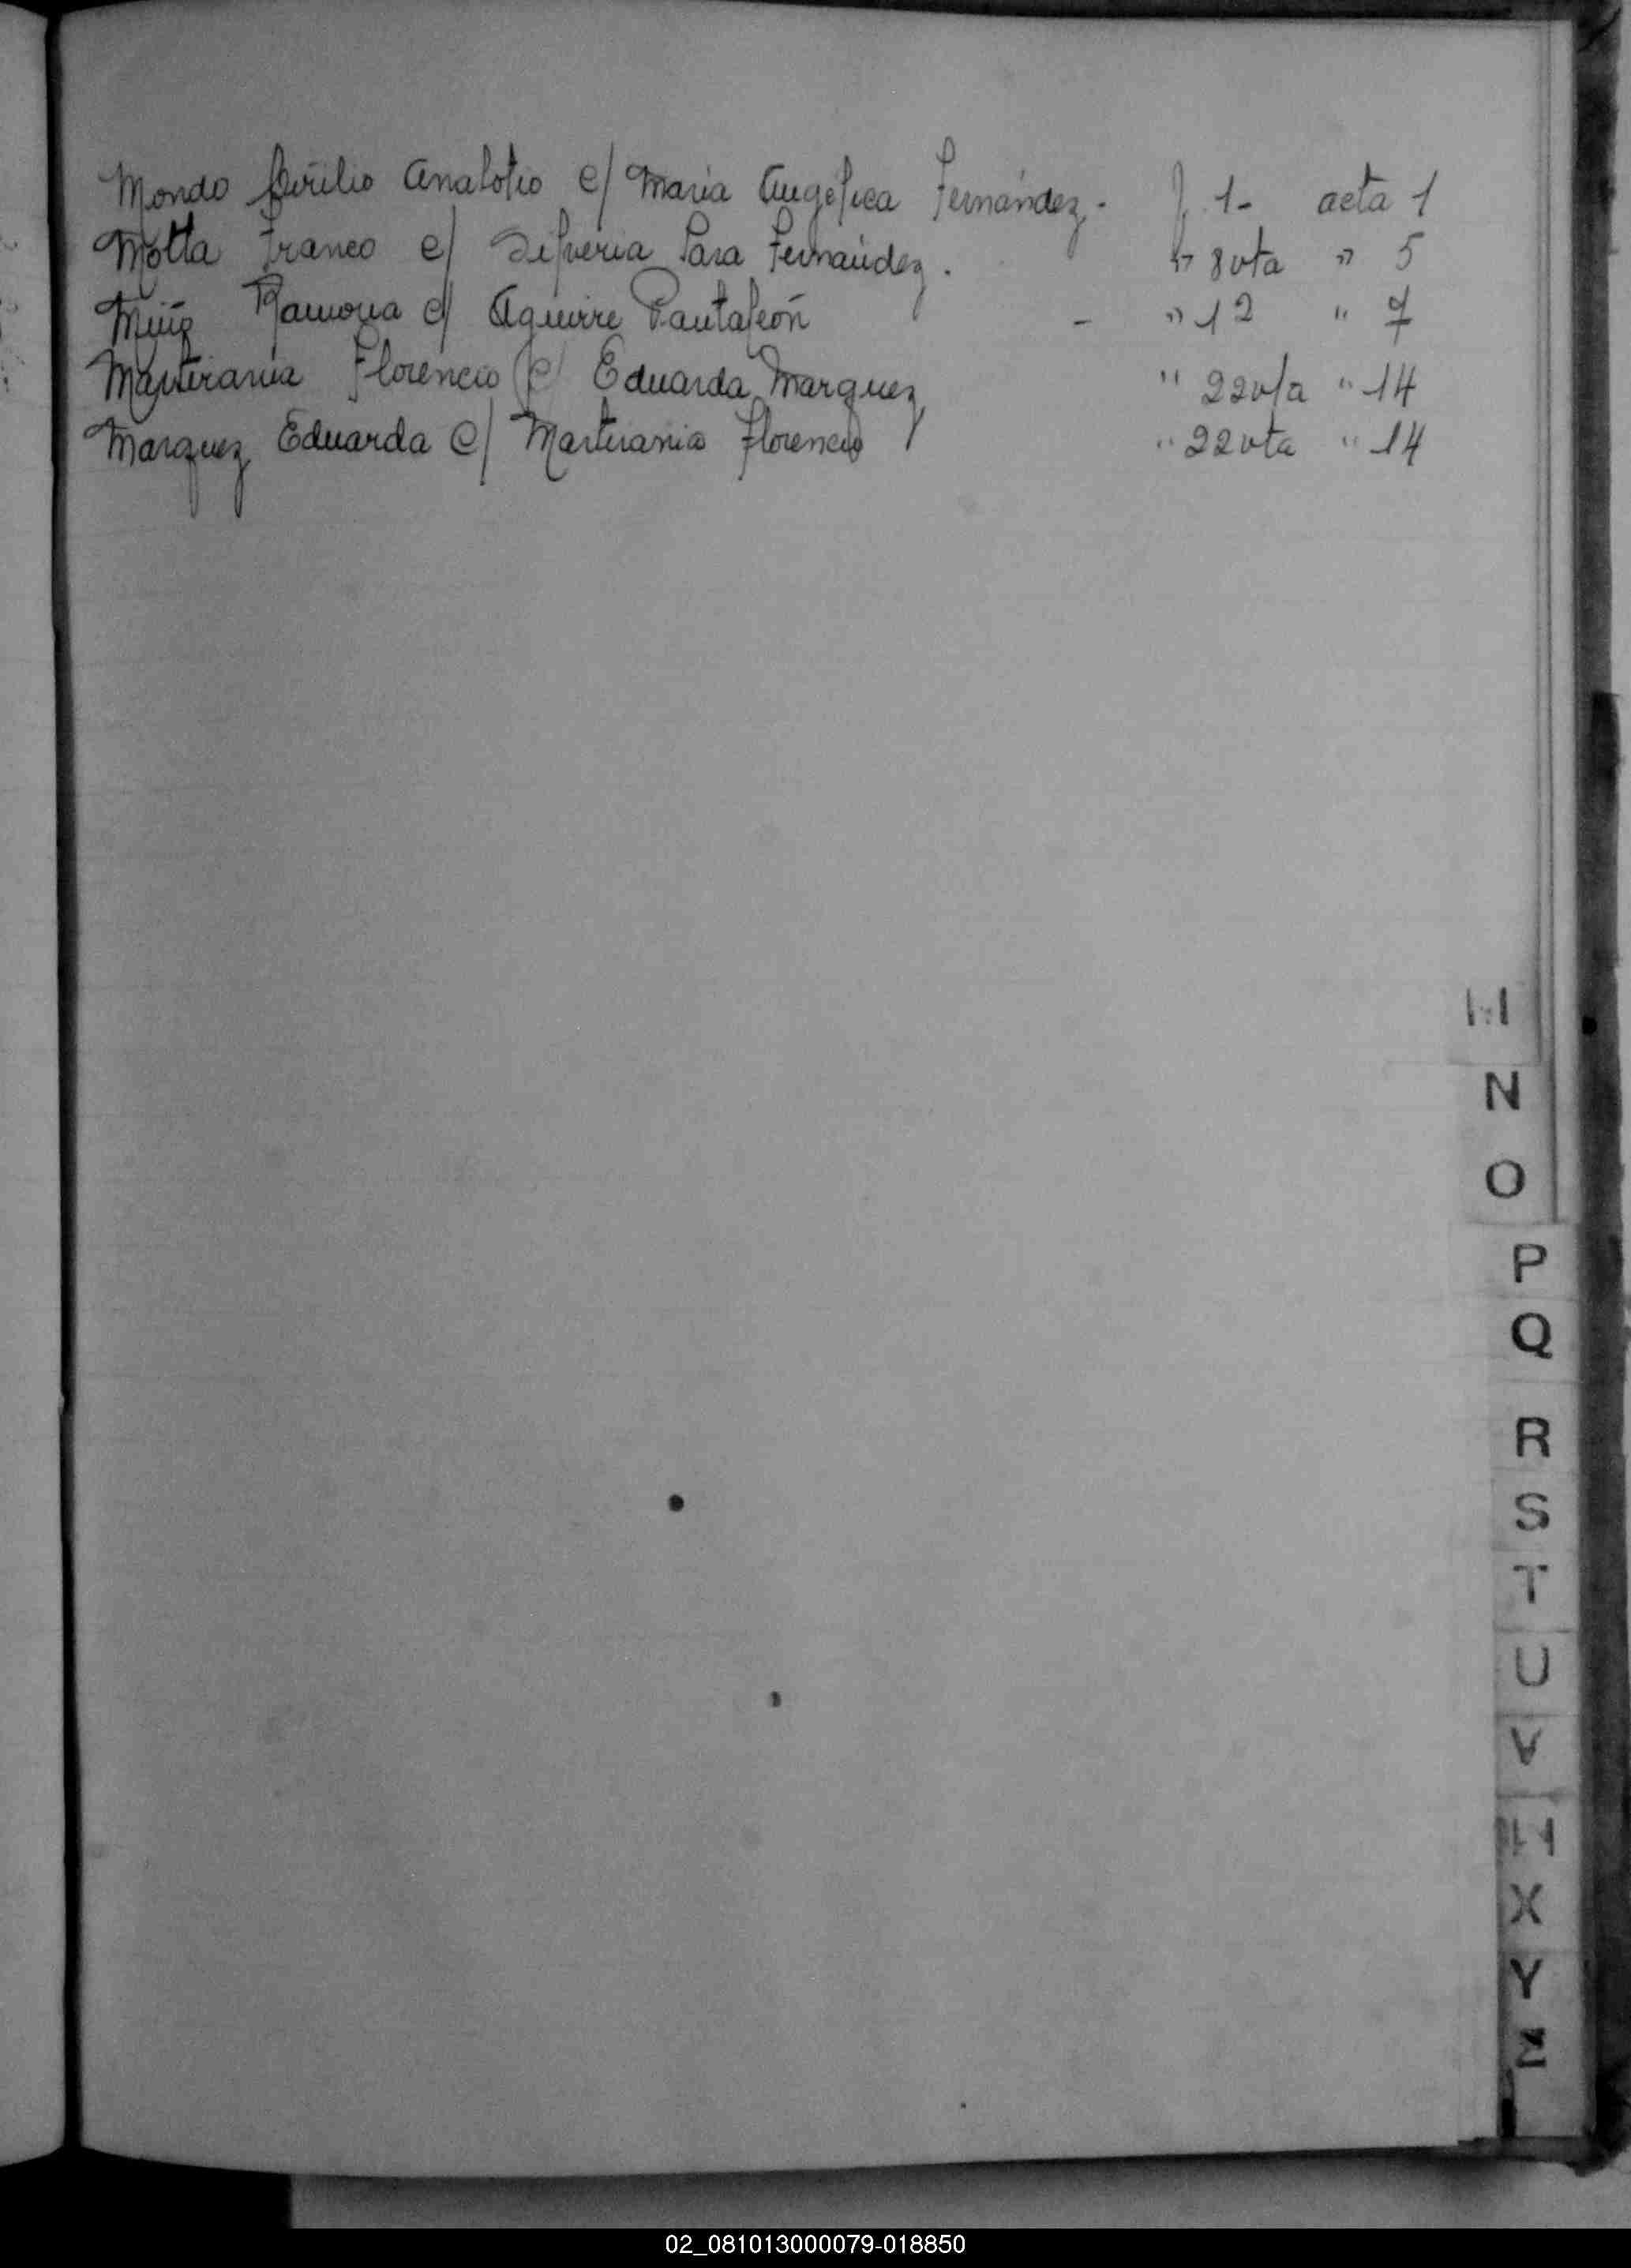 Mondo Anatolio c/ María Angélica Fernández. f. 1- acta 1
Motta Franco c/ Silveria Sara Fernández. " 8 vta " 5
Ramona c/ Aguirre Pantaleón - " 12 " 7
Masterania Florencio c/ Eduarda Marquez " 22 vta " 14
Marquez Eduarda c/ Masterania Florencio " 22 vta " 14
M
N
O
P
Q
R
S
T
U
V
W
X
Y
Z
02_081013000079-018850